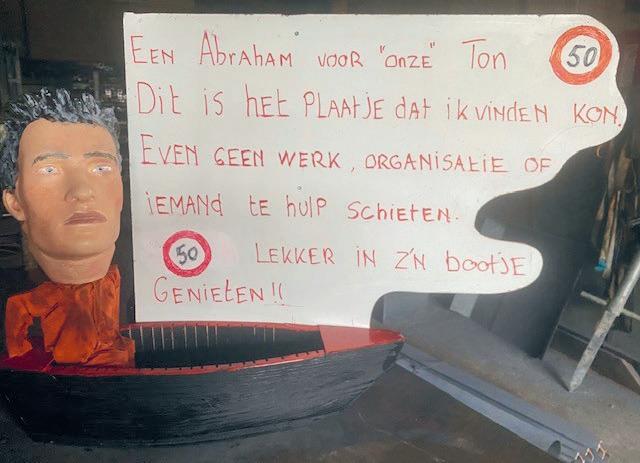 Een Abraham voor "onze" Ton 50
Dit is het plaatje dat ik vinden kon.
Even geen werk, organisatie of
iemand te hulp schieten.
50 Lekker in z'n bootje
Genieten!!